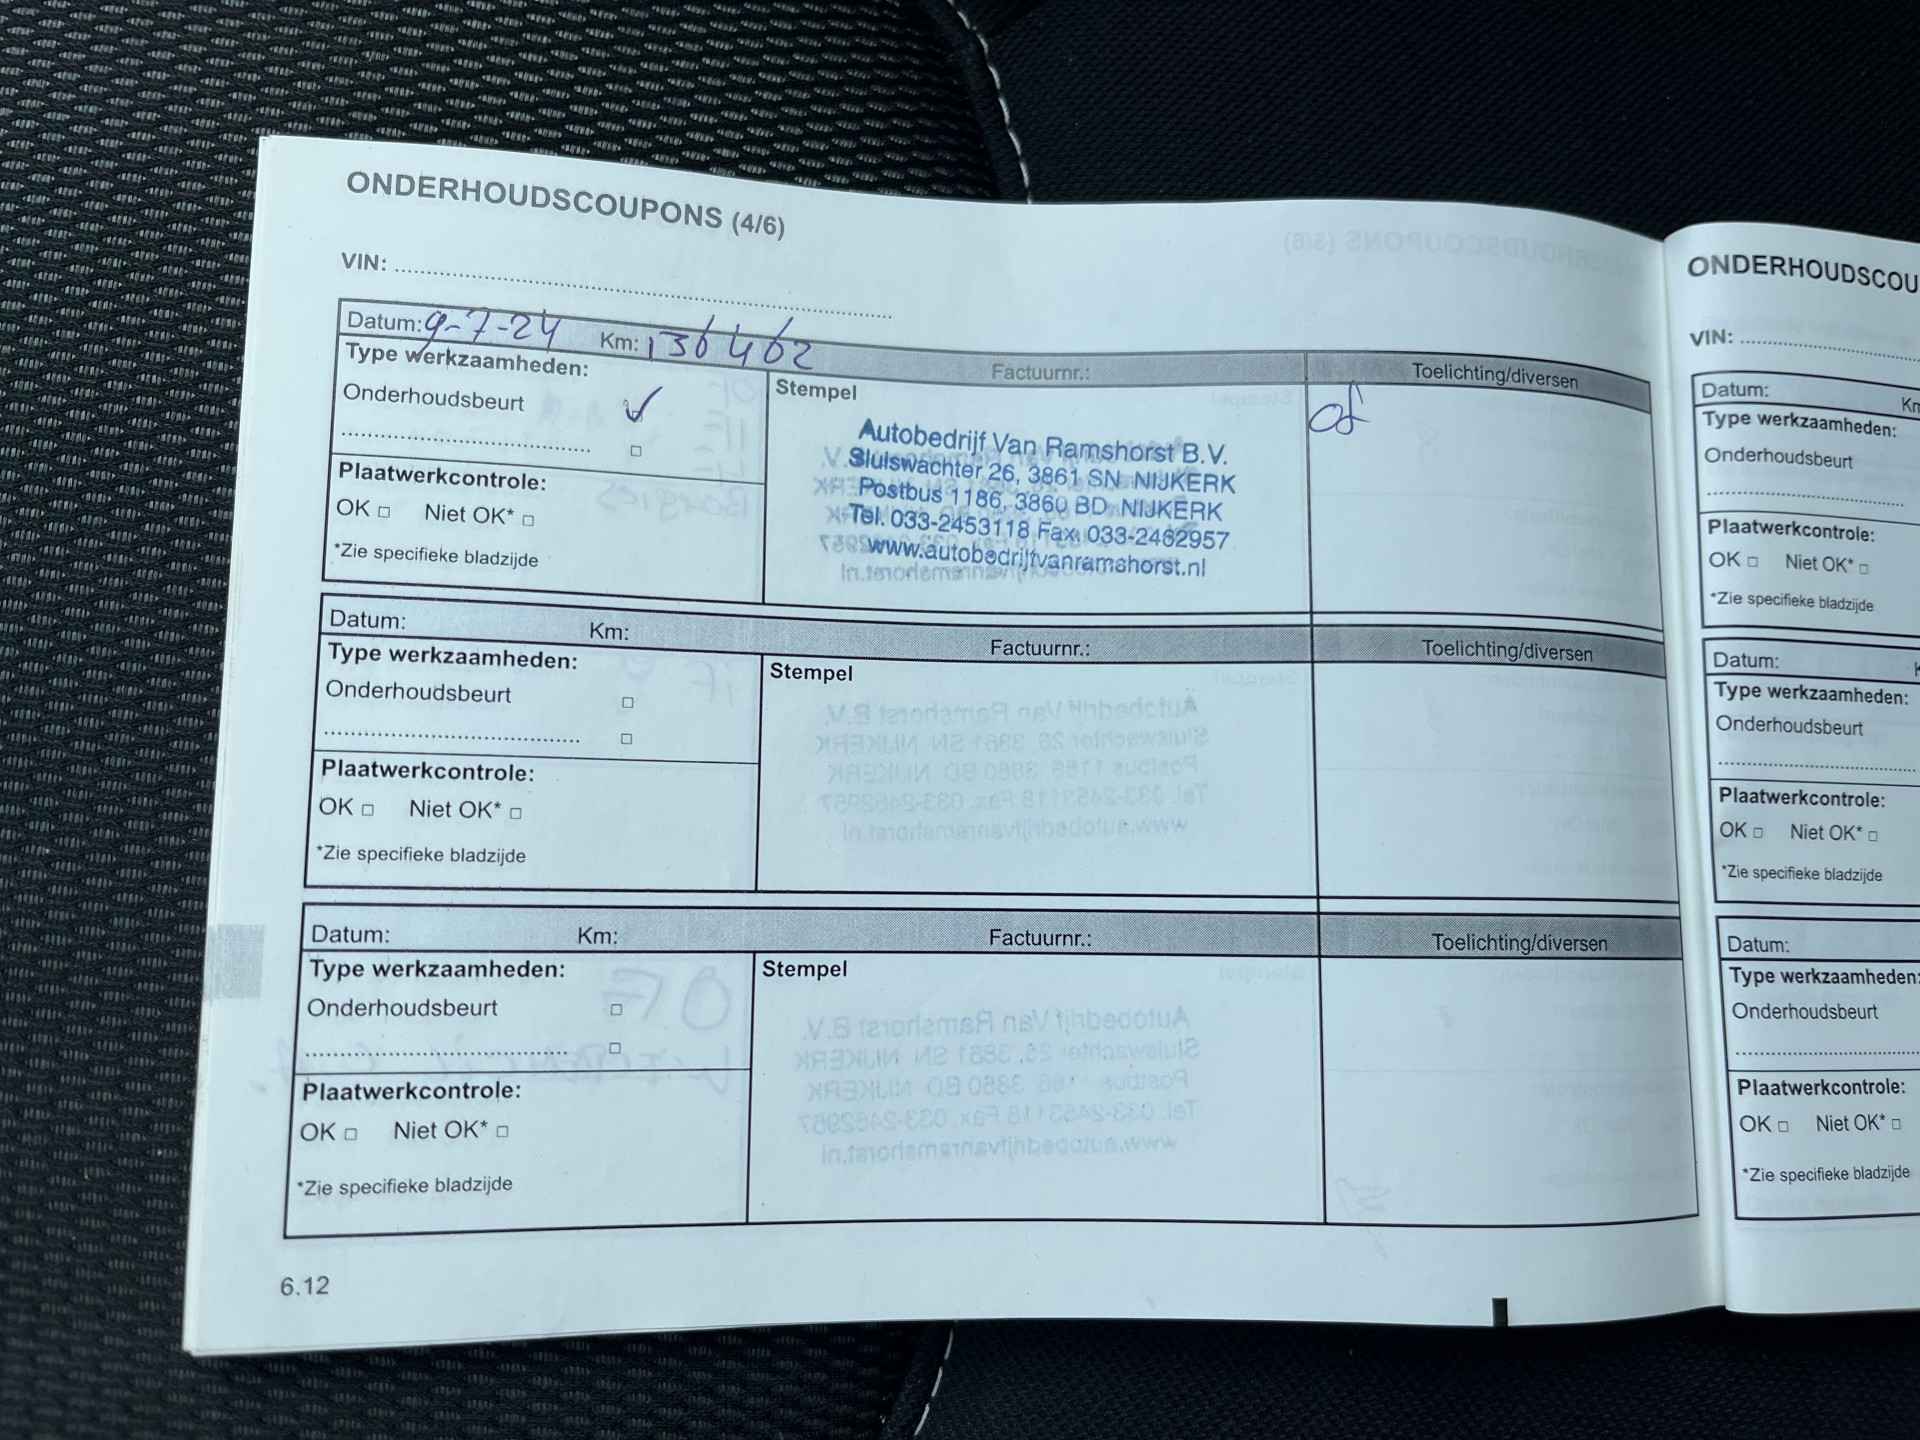 ONDERHOUDSCOUPONS (4/6)
VIN:
Datum: 9-7-24 Km: 136462 Factuurnr.: Toelichting/diversen
Type werkzaamheden:
Onderhoudsbeurt
Plaatwerkcontrole:
OK Niet OK*
*Zie specifieke bladzijde
Stempel
Autobedrijf Van Ramshorst B.V.
Sluiswachter 26, 3861 SN NIJKERK
Postbus 1186, 3860 BD NIJKERK
Tel. 033-2453118 Fax. 033-2462957
www.autobedrijfvanramshorst.nl
Datum: Km: Factuurnr.: Toelichting/diversen
Type werkzaamheden:
Onderhoudsbeurt
Plaatwerkcontrole:
OK Niet OK*
*Zie specifieke bladzijde
Stempel
Datum: Km: Factuurnr.: Toelichting/diversen
Type werkzaamheden:
Onderhoudsbeurt
Plaatwerkcontrole:
OK Niet OK*
*Zie specifieke bladzijde
Stempel
6.12
ONDERHOUDSCOU
VIN:
Datum:
Type werkzaamheden:
Onderhoudsbeurt
Plaatwerkcontrole:
OK Niet OK*
*Zie specifieke bladzijde
Datum:
Type werkzaamheden:
Onderhoudsbeurt
Plaatwerkcontrole:
OK Niet OK*
*Zie specifieke bladzijde
Datum:
Type werkzaamheden:
Onderhoudsbeurt
Plaatwerkcontrole:
OK Niet OK*
*Zie specifieke bladzijde